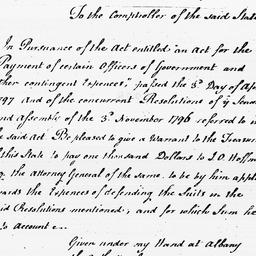 To the Comptroller of the said State
In Pursuance of the Act entitled "an Act for the
Payment of certain Officers of Government and
other contingent Expences," passed the 3d Day of Ap
1797 And of the concurrent Resolutions of ye Senate
and Assembly of the 3d November 1796 referred to in
the said Act Be pleased to give a Warrant to the Treasurer
of this State to pay one thousand Dollars to J O Hoffman
the Attorney General of the same, to be by him appli
towards the Expences of defending the Suits in the
said Resolutions mentioned; and for which Sum he
to account
Given under my Hand at Albany